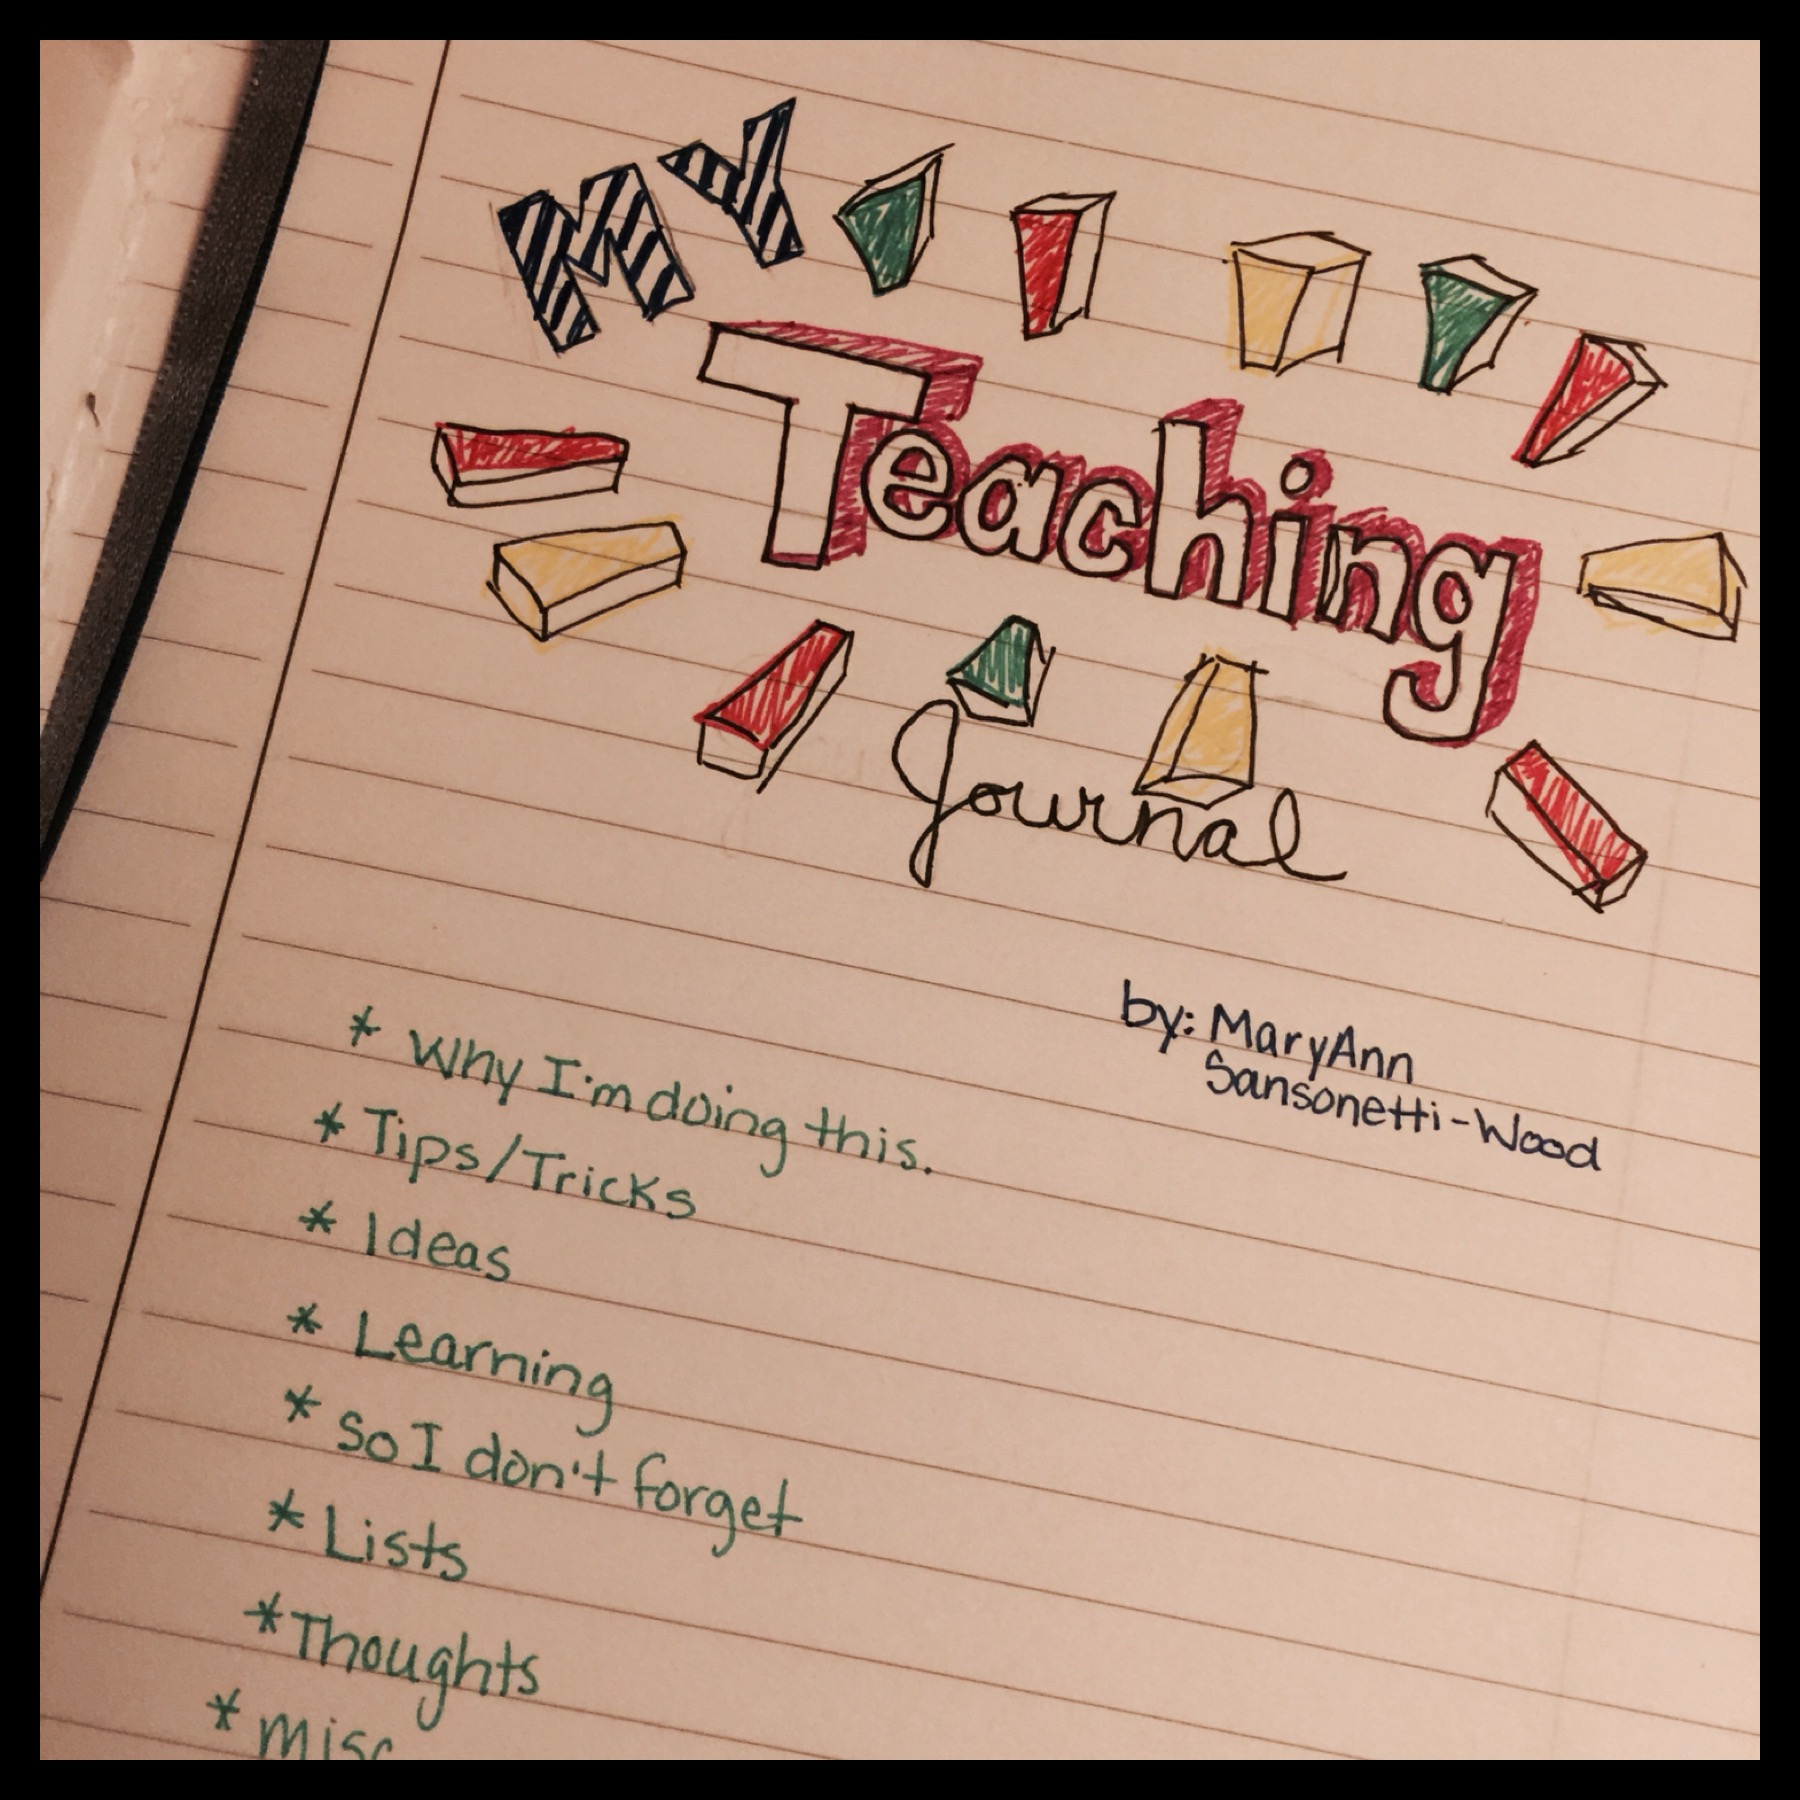 My
Teaching
Journal
by: MaryAnn
Sansonetti-Wood
* Why I'm doing this.
* Tips/Tricks
* Ideas
* Learning
* So I don't forget
* Lists
* Thoughts
* misc